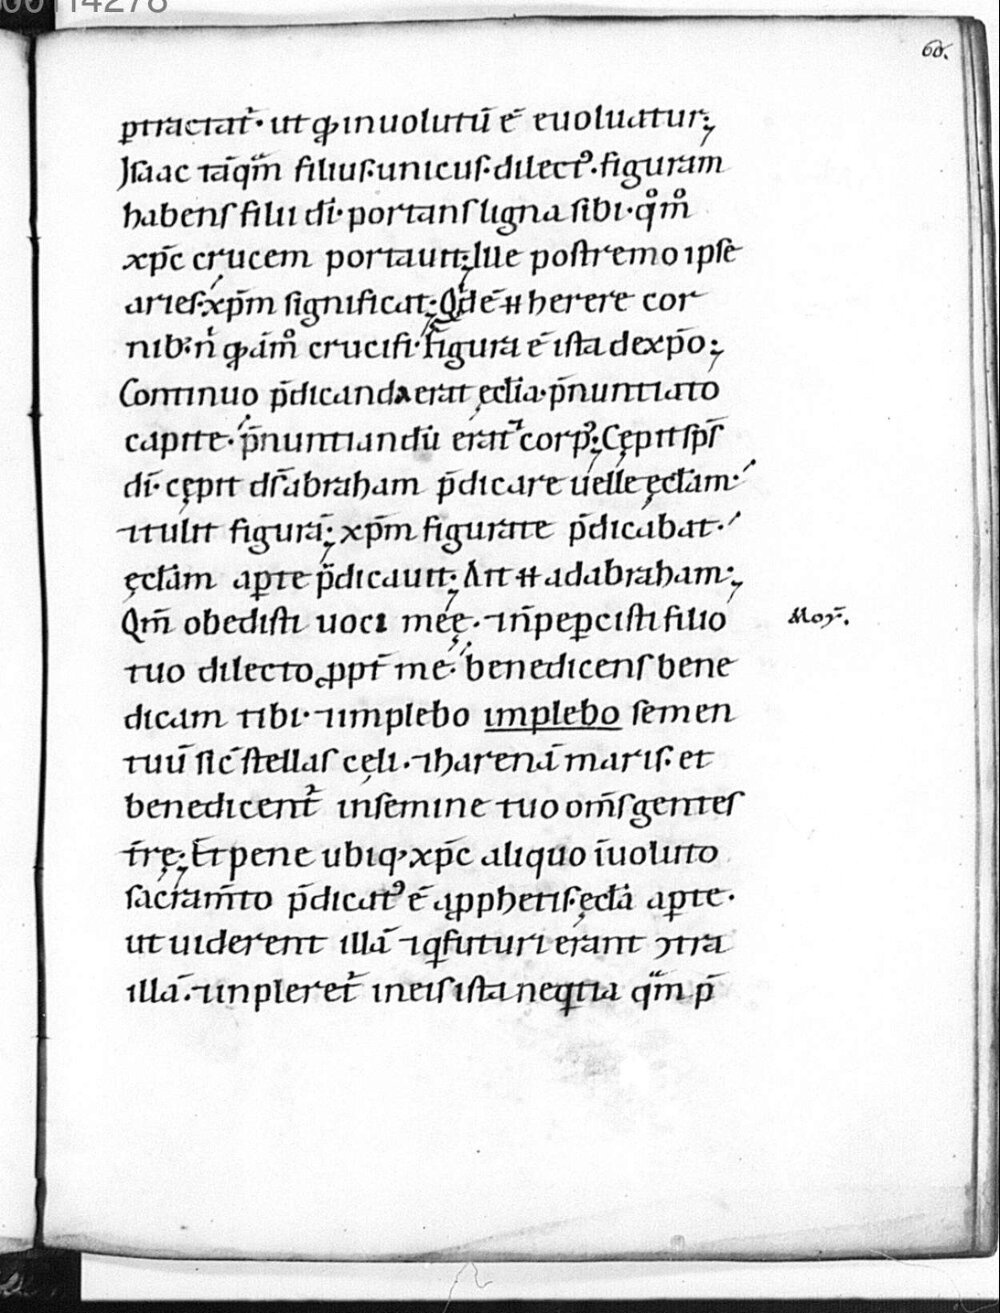 60.
ꝑtractat᷑· ut ꝙ inuolutū ē euoluatur;
Isaac tāqͣm filius·unicus·dilectꝰ·figuram
habens filii di̅·portans ligna sibi·qͦmͦ
xp̄c crucem portauit; Ille postremo ipse
aries·xp̄m significat; Qͥd ē ᚔ herere cor
nib;n̍ ꝙdāmͦ crucifi·figura ē ista de xp̄o;
Continuo p̄dicanda erat ęcl̄ia·p̄nuntiato
capite·p̄nuntiandū erat ⁊ corpꝰ; Cępit sp̄s
di̅·cępit ds̄ abraham p̄dicare uelle ęccl̄am·
⁊ tulit figurā; xp̄m figurate p̄dicabat·
ęccl̄am aꝑte p̄dicauit; Ait ᚔ ad abraham;
Qm̄ obedisti uoci meę·⁊ n̄ peꝑcisti filio
Moyſ̄.
tuo dilecto ꝓpt̄ me·benedicens bene
dicam tibi·⁊ implebo implebo semen
tuū sic̄ stellas cęli·⁊ harenā maris·et
benedicent᷑ in semine tuo om̄s gentes
t̄rę; Et pene ubiq; xp̄c aliquo īuoluto
sacram̄to p̄dicatꝰ ē a ꝓphetis·ęccl̄a aꝑte·
ut uiderent illā ⁊ q̇ futuri erant ↄtra
illā·⁊ inpleret᷑ in eis ista neqͥtia qͣm p̄